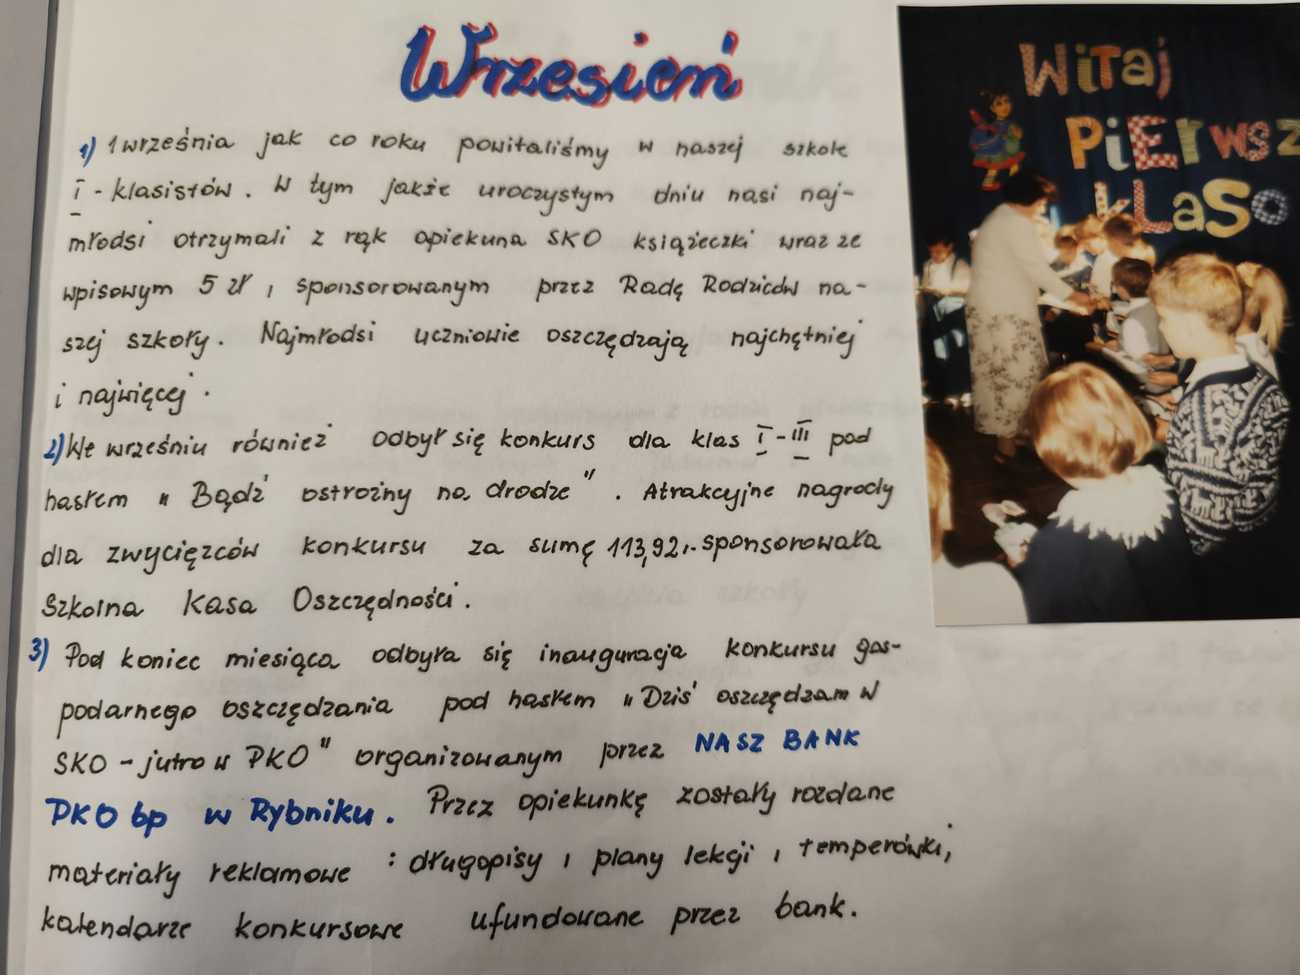 Wrzesień
1) 1 września jak co roku powitaliśmy w naszej szkole
I - klasistów. W tym jakże uroczystym dniu nasi naj-
młodsi otrzymali z rąk opiekuna SKO książeczki wraz ze
wpisowym 5 zł, sponsorowanym przez Radę Rodziców na-
szej szkoły. Najmłodsi uczniowie oszczędzają najchętniej
i najwięcej.
2) We wrześniu również odbył się konkurs dla klas I - III pod
hasłem „Bądź ostrożny na drodze". Atrakcyjne nagrody
dla zwycięzców konkursu za sumę 113,92,- sponsorowała
Szkolna Kasa Oszczędności.
3) Pod koniec miesiąca odbyła się inauguracja konkursu gos-
podarnego oszczędzania pod hasłem „Dziś oszczędzam w
SKO - jutro w PKO" organizowanym przez NASZ BANK
PKO bp w Rybniku. Przez opiekunkę zostały rozdane
materiały reklamowe : długopisy, plany lekcji, temperówki,
kalendarze konkursowe ufundowane przez bank.
WiTaj
PiErwsz
kLaSo